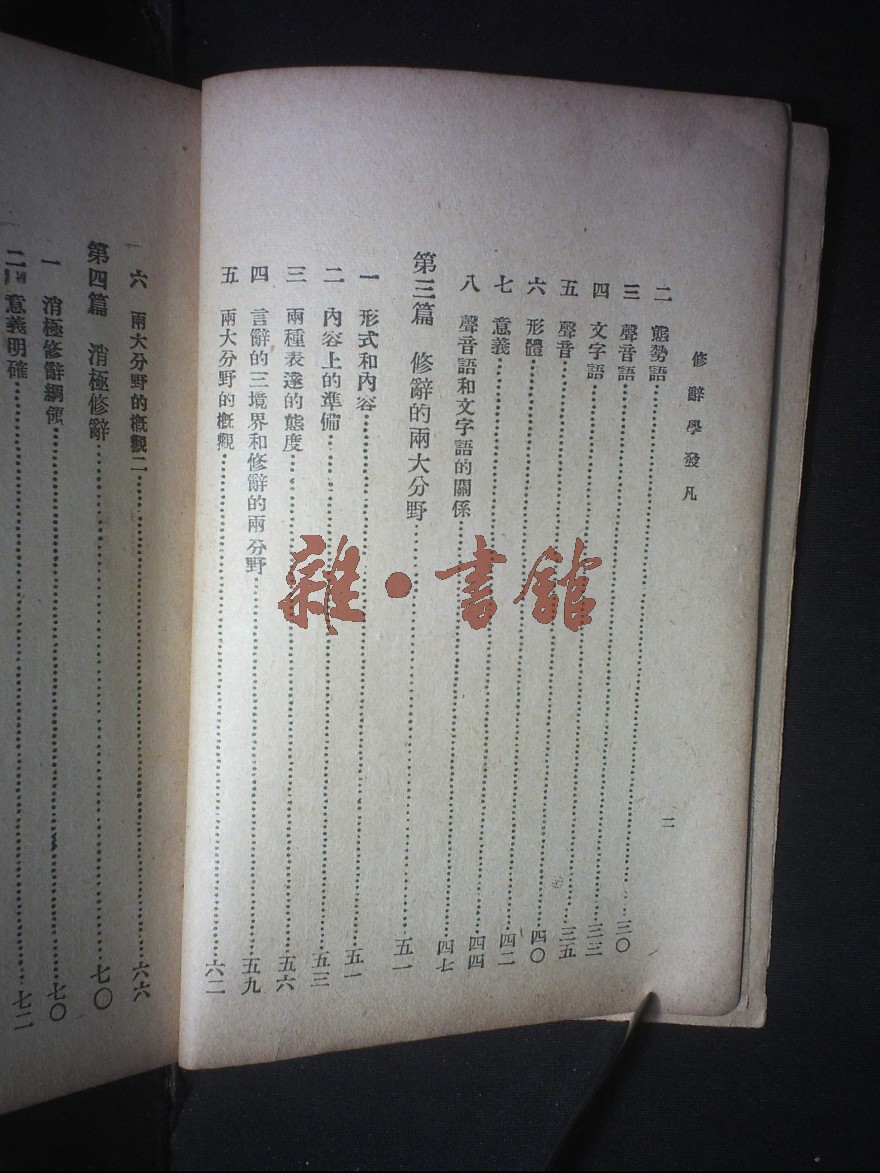 修辭學發凡
二
二 態勢語……三〇
三 聲音語……三三
四 文字語……三五
五 聲音……四〇
六 形體……四二
七 意義……四四
八 聲音語和文字語的關係……四七
第三篇 修辭的兩大分野……五一
一 形式和內容……五一
二 內容上的準備……五三
三 兩種表達的態度……五六
四 言辭的三境界和修辭的兩分野……五九
五 兩大分野的概觀……六二
六 兩大分野的概觀二……六六
第四篇 消極修辭……七〇
一 消極修辭綱領……七〇
二 意義明確……七二
雜·書館